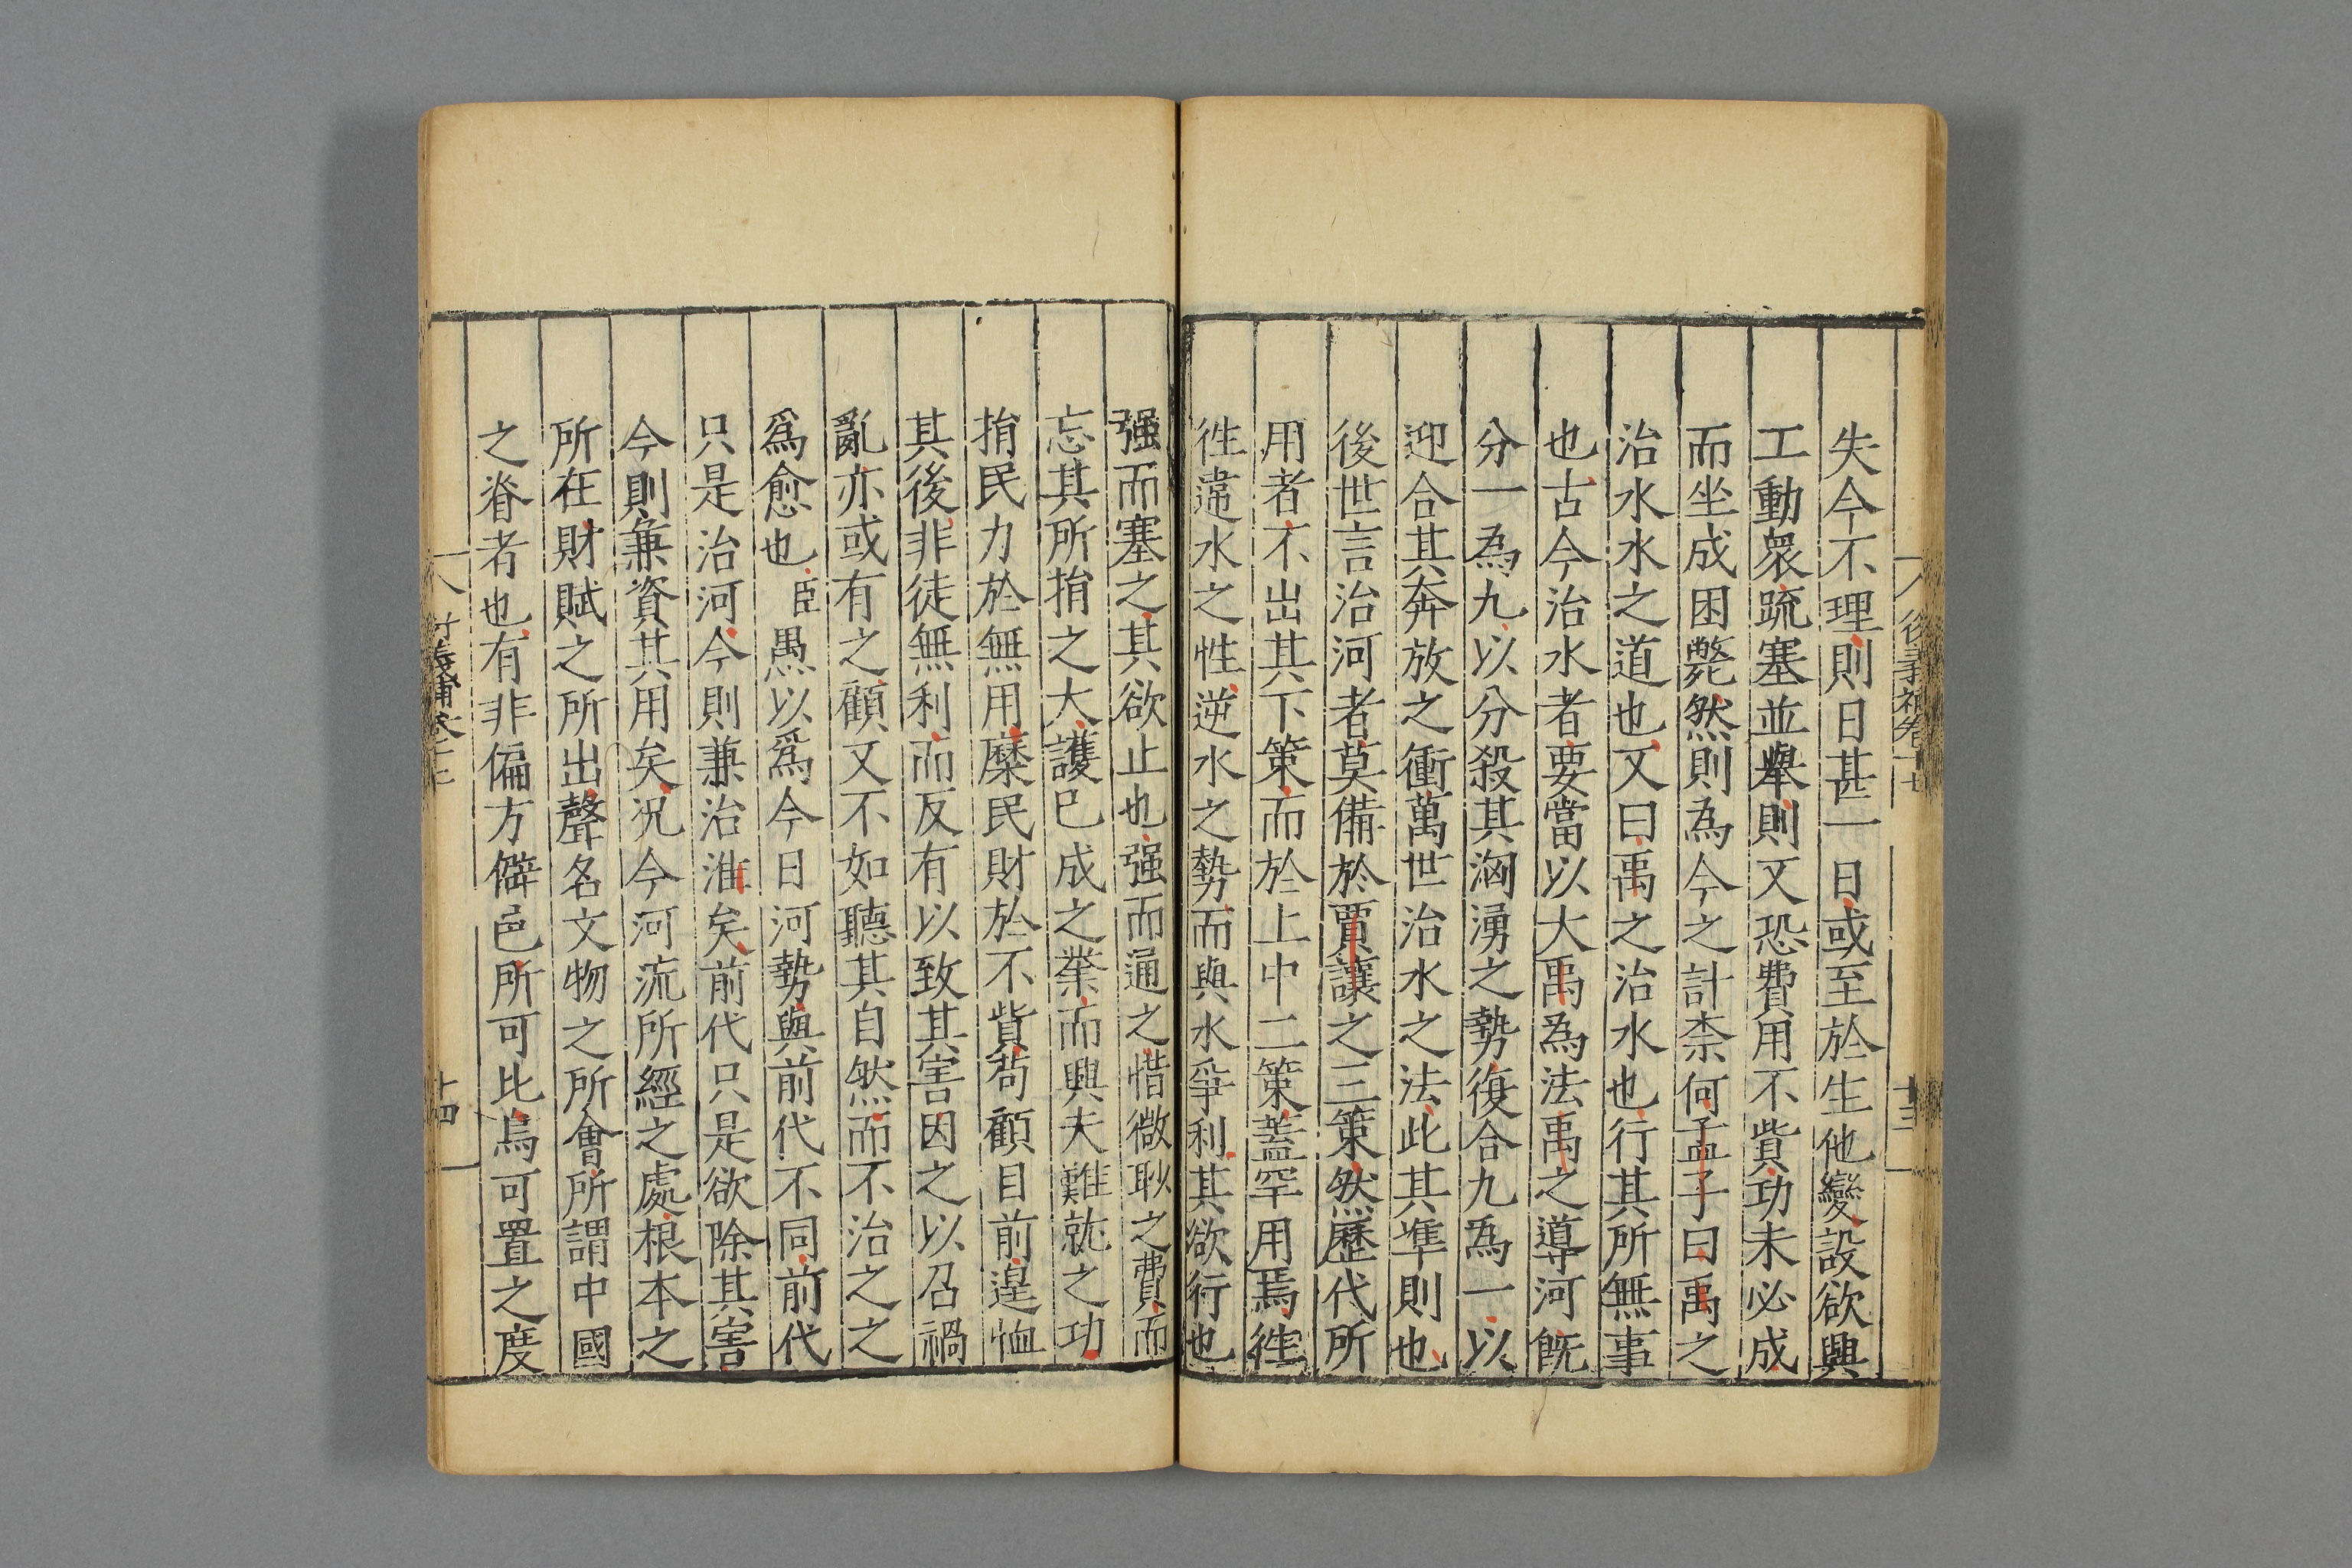 失今不理則日甚一日或至於生他變設欲興
工動衆疏塞並舉則又恐費用不貲功未必成
而坐成困斃然則為今之計柰何孟子曰禹之
治水水之道也又曰禹之治水也行其所無事
也古今治水者要當以大禹為法禹之導河旣
分一為九以分殺其洶湧之勢復合九為一以
迎合其奔放之衝萬世治水之法此其準則也
後世言治河者莫備於賈讓之三策然歷代所
用者不出其下策而於上中二策蓋罕用焉徃
徃違水之性逆水之勢而與水爭利其欲行也
强而塞之其欲止也强而通之惜微眇之費而
忘其所捐之大護已成之業而興夫難就之功
捐民力於無用糜民財於不貲苟顧目前遑恤
其後非徒無利而反有以致其害因之以召禍
亂亦或有之顧又不如聽其自然而不治之之
爲愈也臣愚以爲今日河勢與前代不同前代
只是治河今則兼治淮矣前代只是欲除其害
今則兼資其用矣況今河流所經之處根本之
所在財賦之所出聲名文物之所會所謂中國
之脊者也有非偏方僻邑所可比烏可置之度
十四